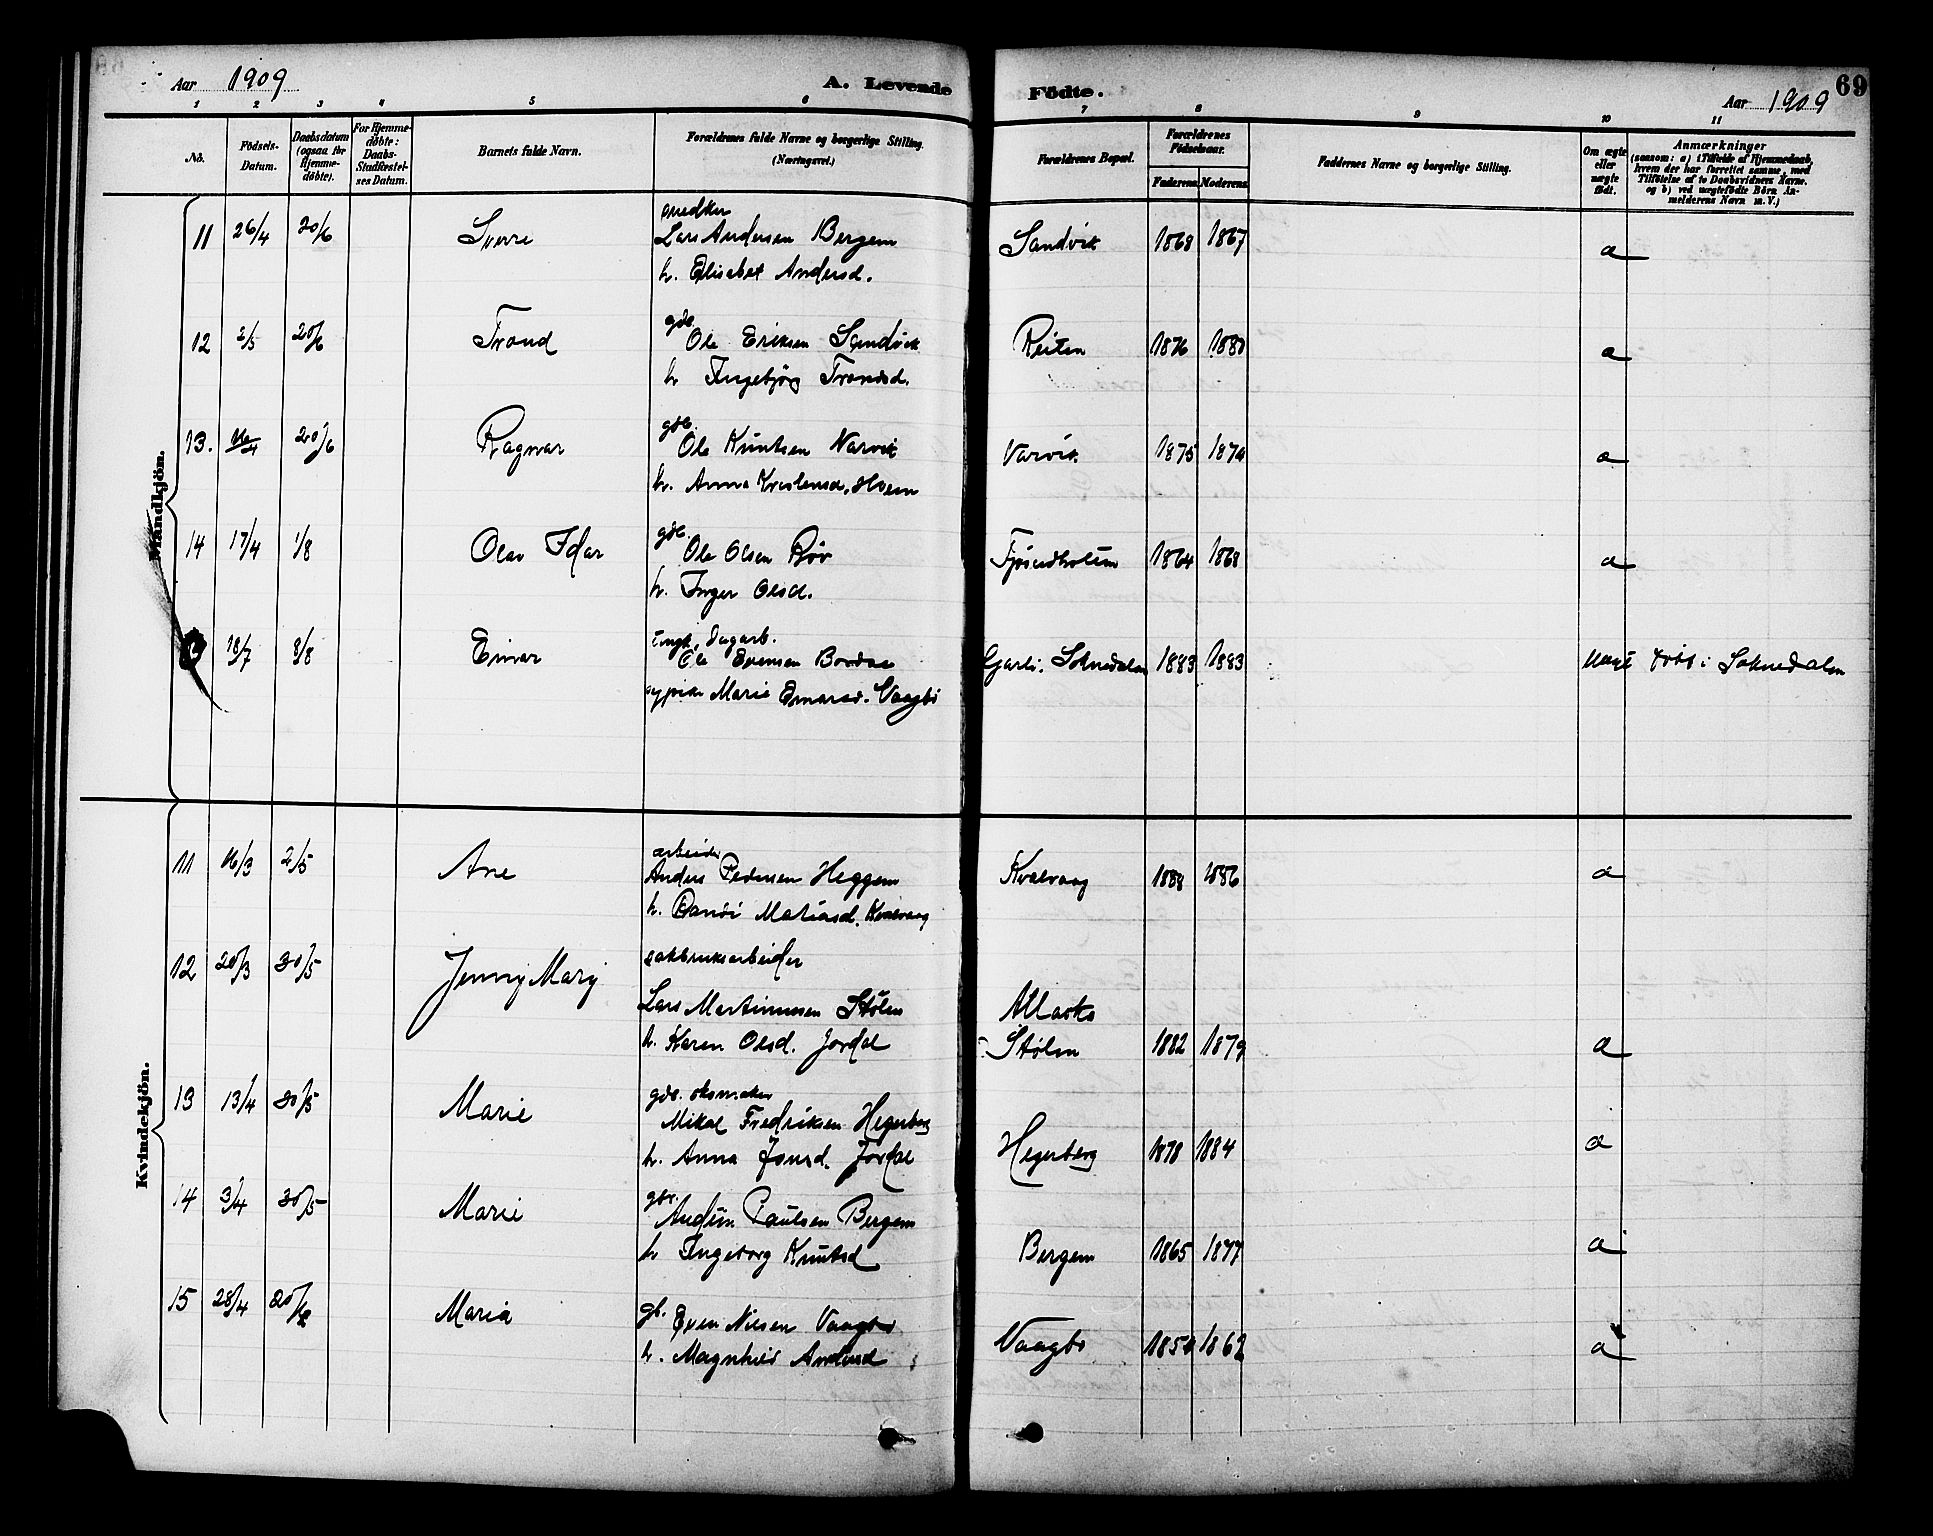 Aar 1909 A. Levende Födte. Aar 1909 69
1 2 3 4 5 6 7 8 9 10 11
No. Födsels-Datum. Daabsdatum (ogsaa for Hjemme-døbte). For Hjemme-døbte: Daabs-Stadfæstel-ses Datum. Barnets fulde Navn. Forældrenes fulde Navne og borgerlige Stilling. (Næringsvei.) Forældrenes Bopæl. Forældrenes Födselsaar. Faderens Moderens Faddernes Navne og borgerlige Stilling. Om ægte eller uægte födt. Anmærkninger (saasom: a) i Tilfælde af Hjemmedaab, hvem der har forrettet samme, med Tilföielse af to Daabsvidners Navne, og b) ved uægtefødte Börn An-melderens Navn m. V.)
Mandkjön.
snedker
11 26/4 20/6 Sverre Lars Andersen Bergem Sandvik 1868 1867 a
h. Elisabet Andersd.
gdb
12 2/5 20/6 Trond Ole Eriksen Sandvik Reiten 1876 1880 a
h Ingebjørg Trondsd.
gdb.
13. 16/4 20/6 Ragnar Ole Knutsen Narvik Varvik 1875 1874 a
h. Anna Kristensd. Hoem
gdb.
14 17/4 1/8 Olav Idar Ole Olsen Røv Fjøsedholum 1864 1868 a
h. Inger Olsd.
Ungk. Dagarb.
18/7 8/8 Einar Ole Evensen Bordae Gjærli. Soknedalen 1883 1883 uægt født i Soknedalen
og pike Marie Einarsd. Vaagbø
Kvindekjön.
arbeider
11 16/3 2/5 Ane Anders Pedersen Heggem Kvalvaag 1888 1886 a
h. Randi Matiasd. Kvalvaag
12 20/3 30/5 Jenny Mary sakbruksarbeider
Lars Martinussen Stølen Allaska
h. Karen Olsd. Jordal Stølen 1882 1879 a
13 13/4 30/5 Marie gdb.
Mikal Fredriksen Hegerberg
h. Anna Jonsd. Jordal Hegerberg 1878 1884 a
gbr.
14 3/4 30/5 Marie Audun Paulsen Bergem
h Ingeborg Knutsd Bergem 1865 1877 a
15 28/4 20/6 Maria gb. Even Nilsen Vaagbø
h. Magnhild Amundsd Vaagbø 1850 1862 a